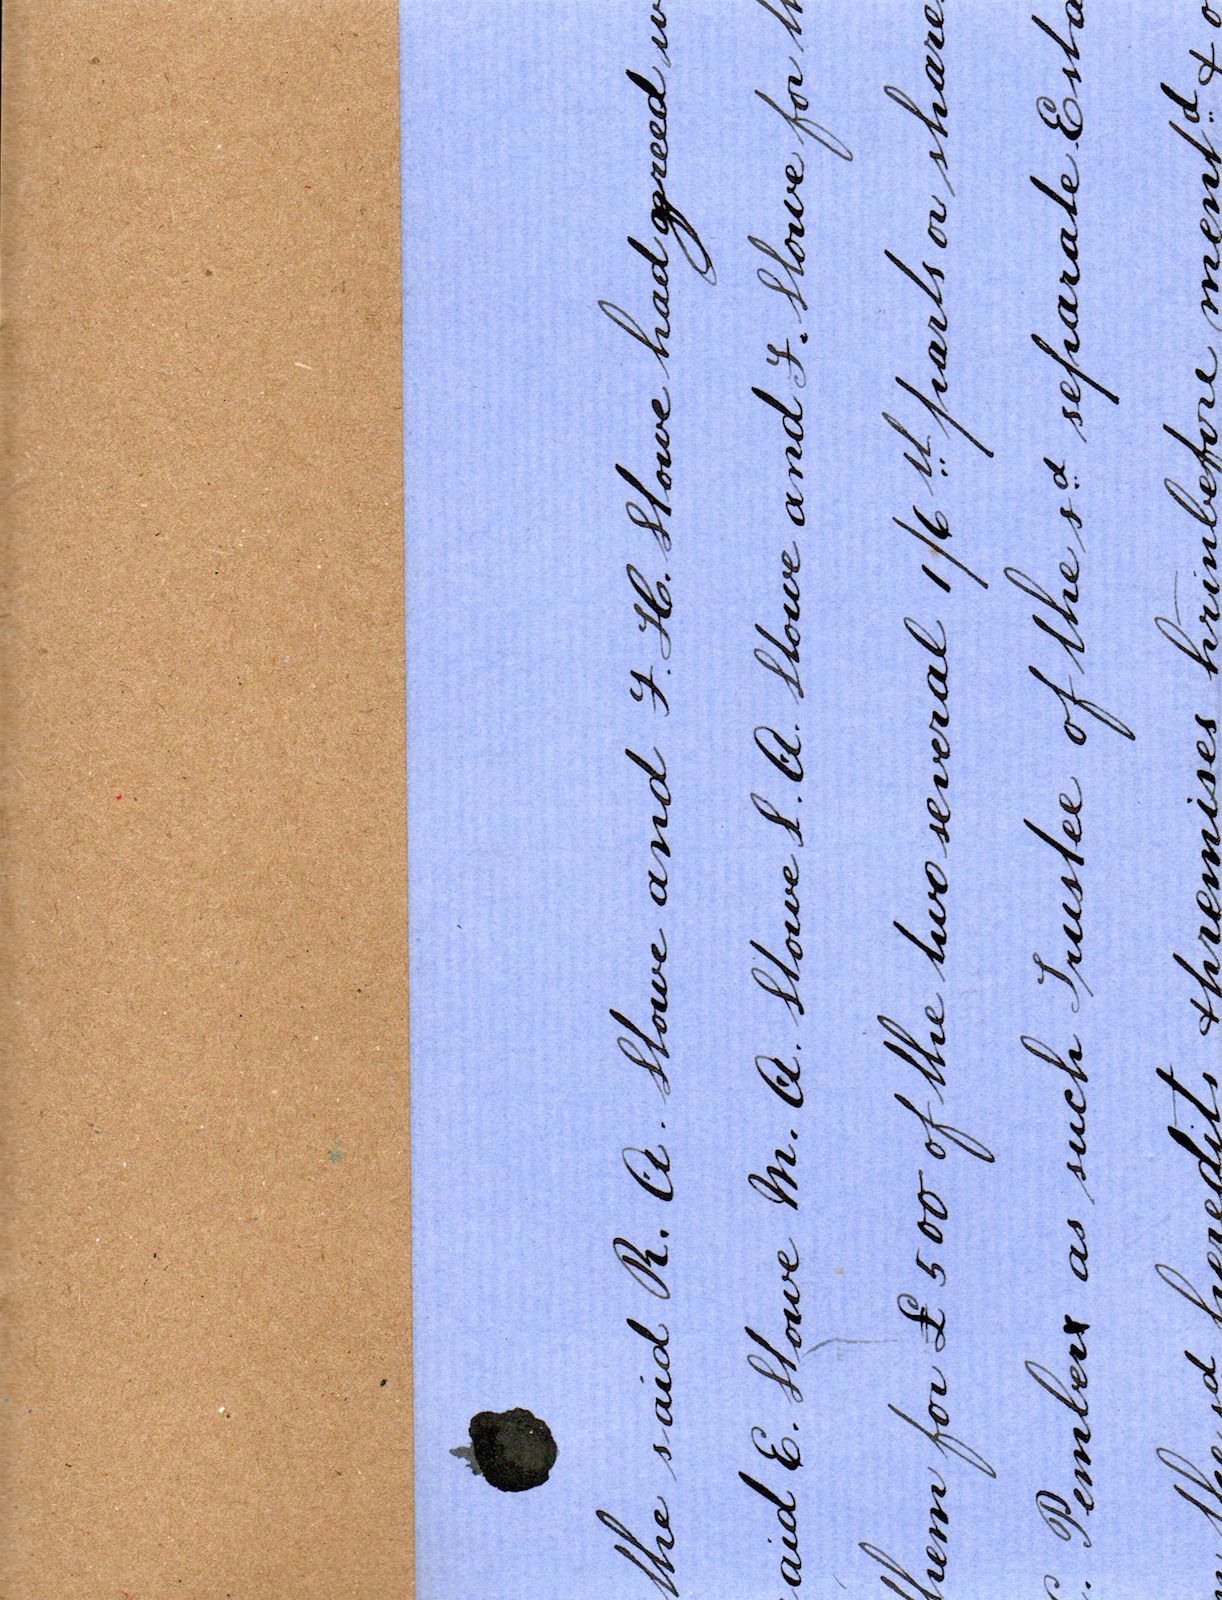 the said R. A. Stowe and F. H. Stowe had agreed w
aid E. Stowe M. A. Stowe S. A. Stowe and F. Stowe for th
them for £500 of the two several 1/6th parts or share
Pember as such Trustee of the sd separate Esta
the sd heredits & premises hrinbefore mentd & o